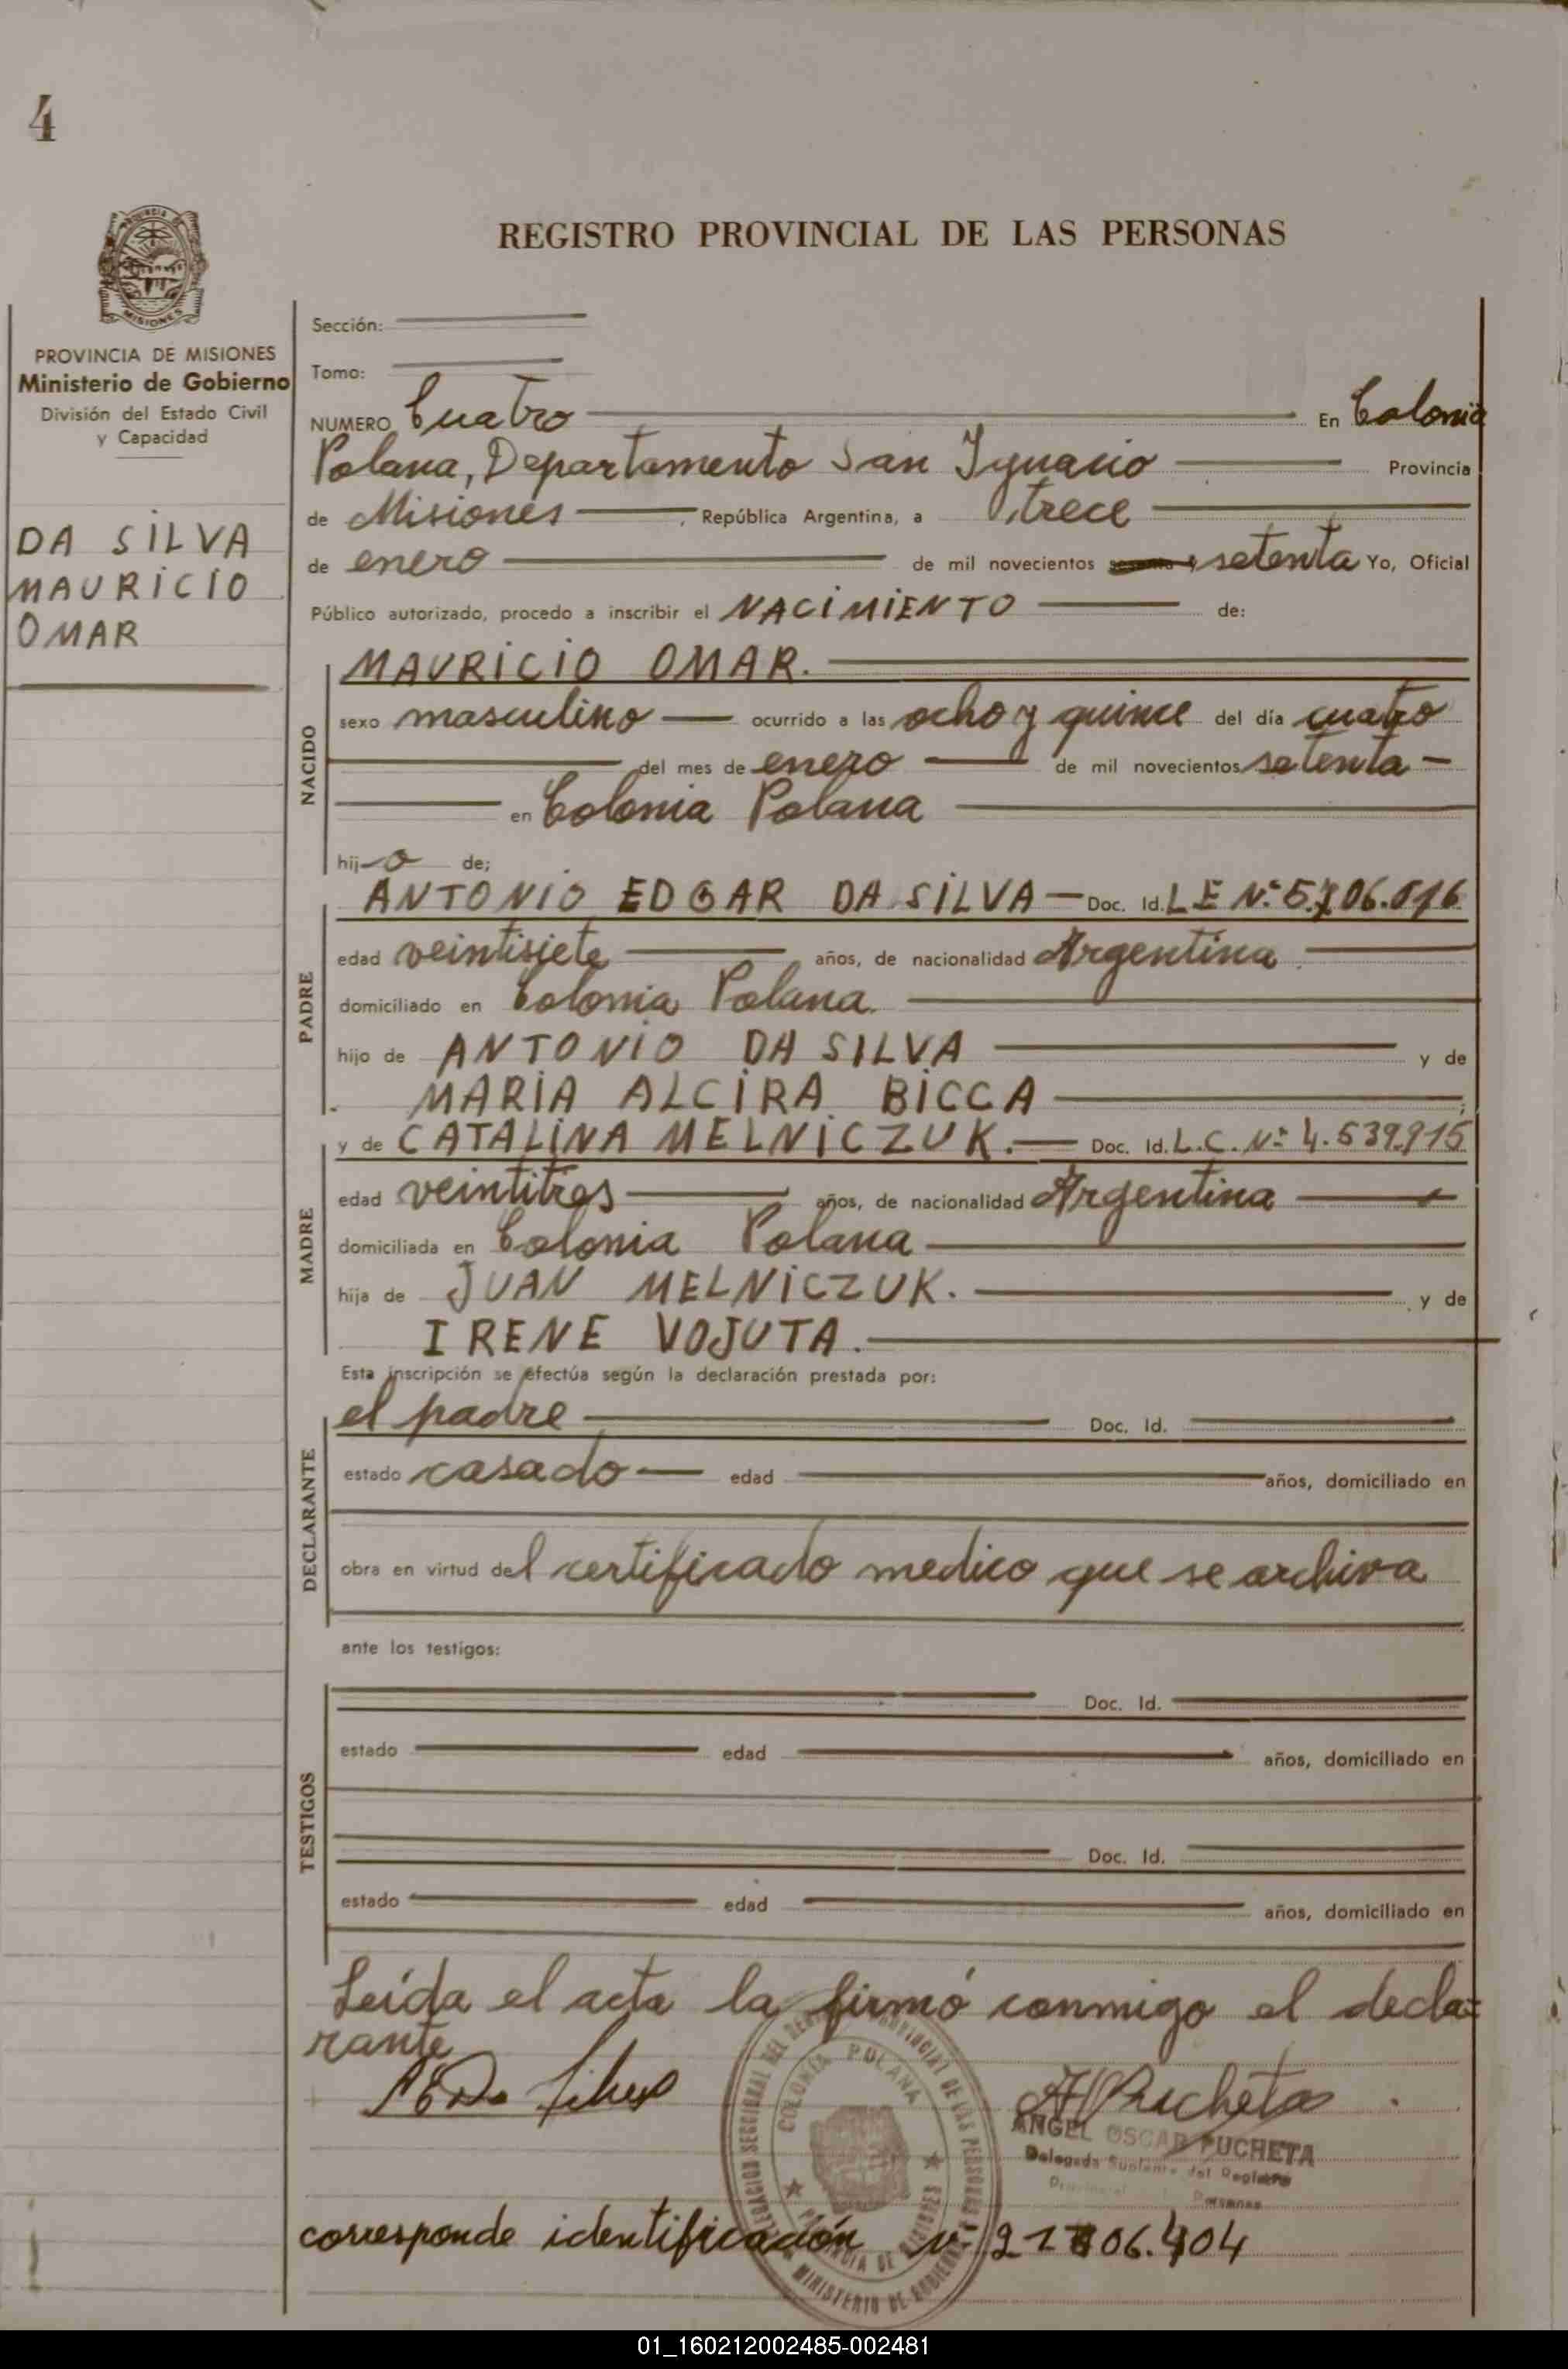 4
REGISTRO PROVINCIAL DE LAS PERSONAS
MISIONES
PROVINCIA DE MISIONES
Ministerio de Gobierno
División del Estado Civil
y Capacidad
DA SILVA
MAURICIO
OMAR
Sección:
Tomo:
NUMERO Cuatro En Colonia
Polana, Departamento San Ignacio Provincia
de Misiones, República Argentina, a trece
de enero de mil novecientos setenta Yo, Oficial
Público autorizado, procedo a inscribir el NACIMIENTO de:
NACIDO
MAURICIO OMAR.
sexo masculino ocurrido a las ocho y quince del día cuatro
del mes de enero de mil novecientos setenta
en Colonia Polana
hijo de;
PADRE
ANTONIO EDGAR DA SILVA Doc. Id. LE Nº
edad veintisiete años, de nacionalidad Argentina
domiciliado en Colonia Polana
hijo de ANTONIO DA SILVA y de
MARIA ALCIRA BICCA
MADRE
y de CATALINA MELNICZUK. Doc. Id. L.C. Nº 4.539.915
edad veintitres años, de nacionalidad Argentina
domiciliada en Colonia Polana
hija de JUAN MELNICZUK. y de
IRENE VOJUTA.
Esta inscripción se efectúa según la declaración prestada por:
DECLARANTE
el padre Doc. Id.
estado casado edad años, domiciliado en
obra en virtud del certificado medico que se archiva
ante los testigos:
TESTIGOS
Doc. Id.
estado edad años, domiciliado en
Doc. Id.
estado edad años, domiciliado en
Leída el acta la firmó conmigo el decla=
rante
COLONIA POLANA
PROVINCIA DE MISIONES
MINISTERIO DE GOBIERNO
APucheta
ANGEL OSCAR PUCHETA
Delegado Suplente del Registro
Personas
corresponde identificación nº
01_160212002485-002481